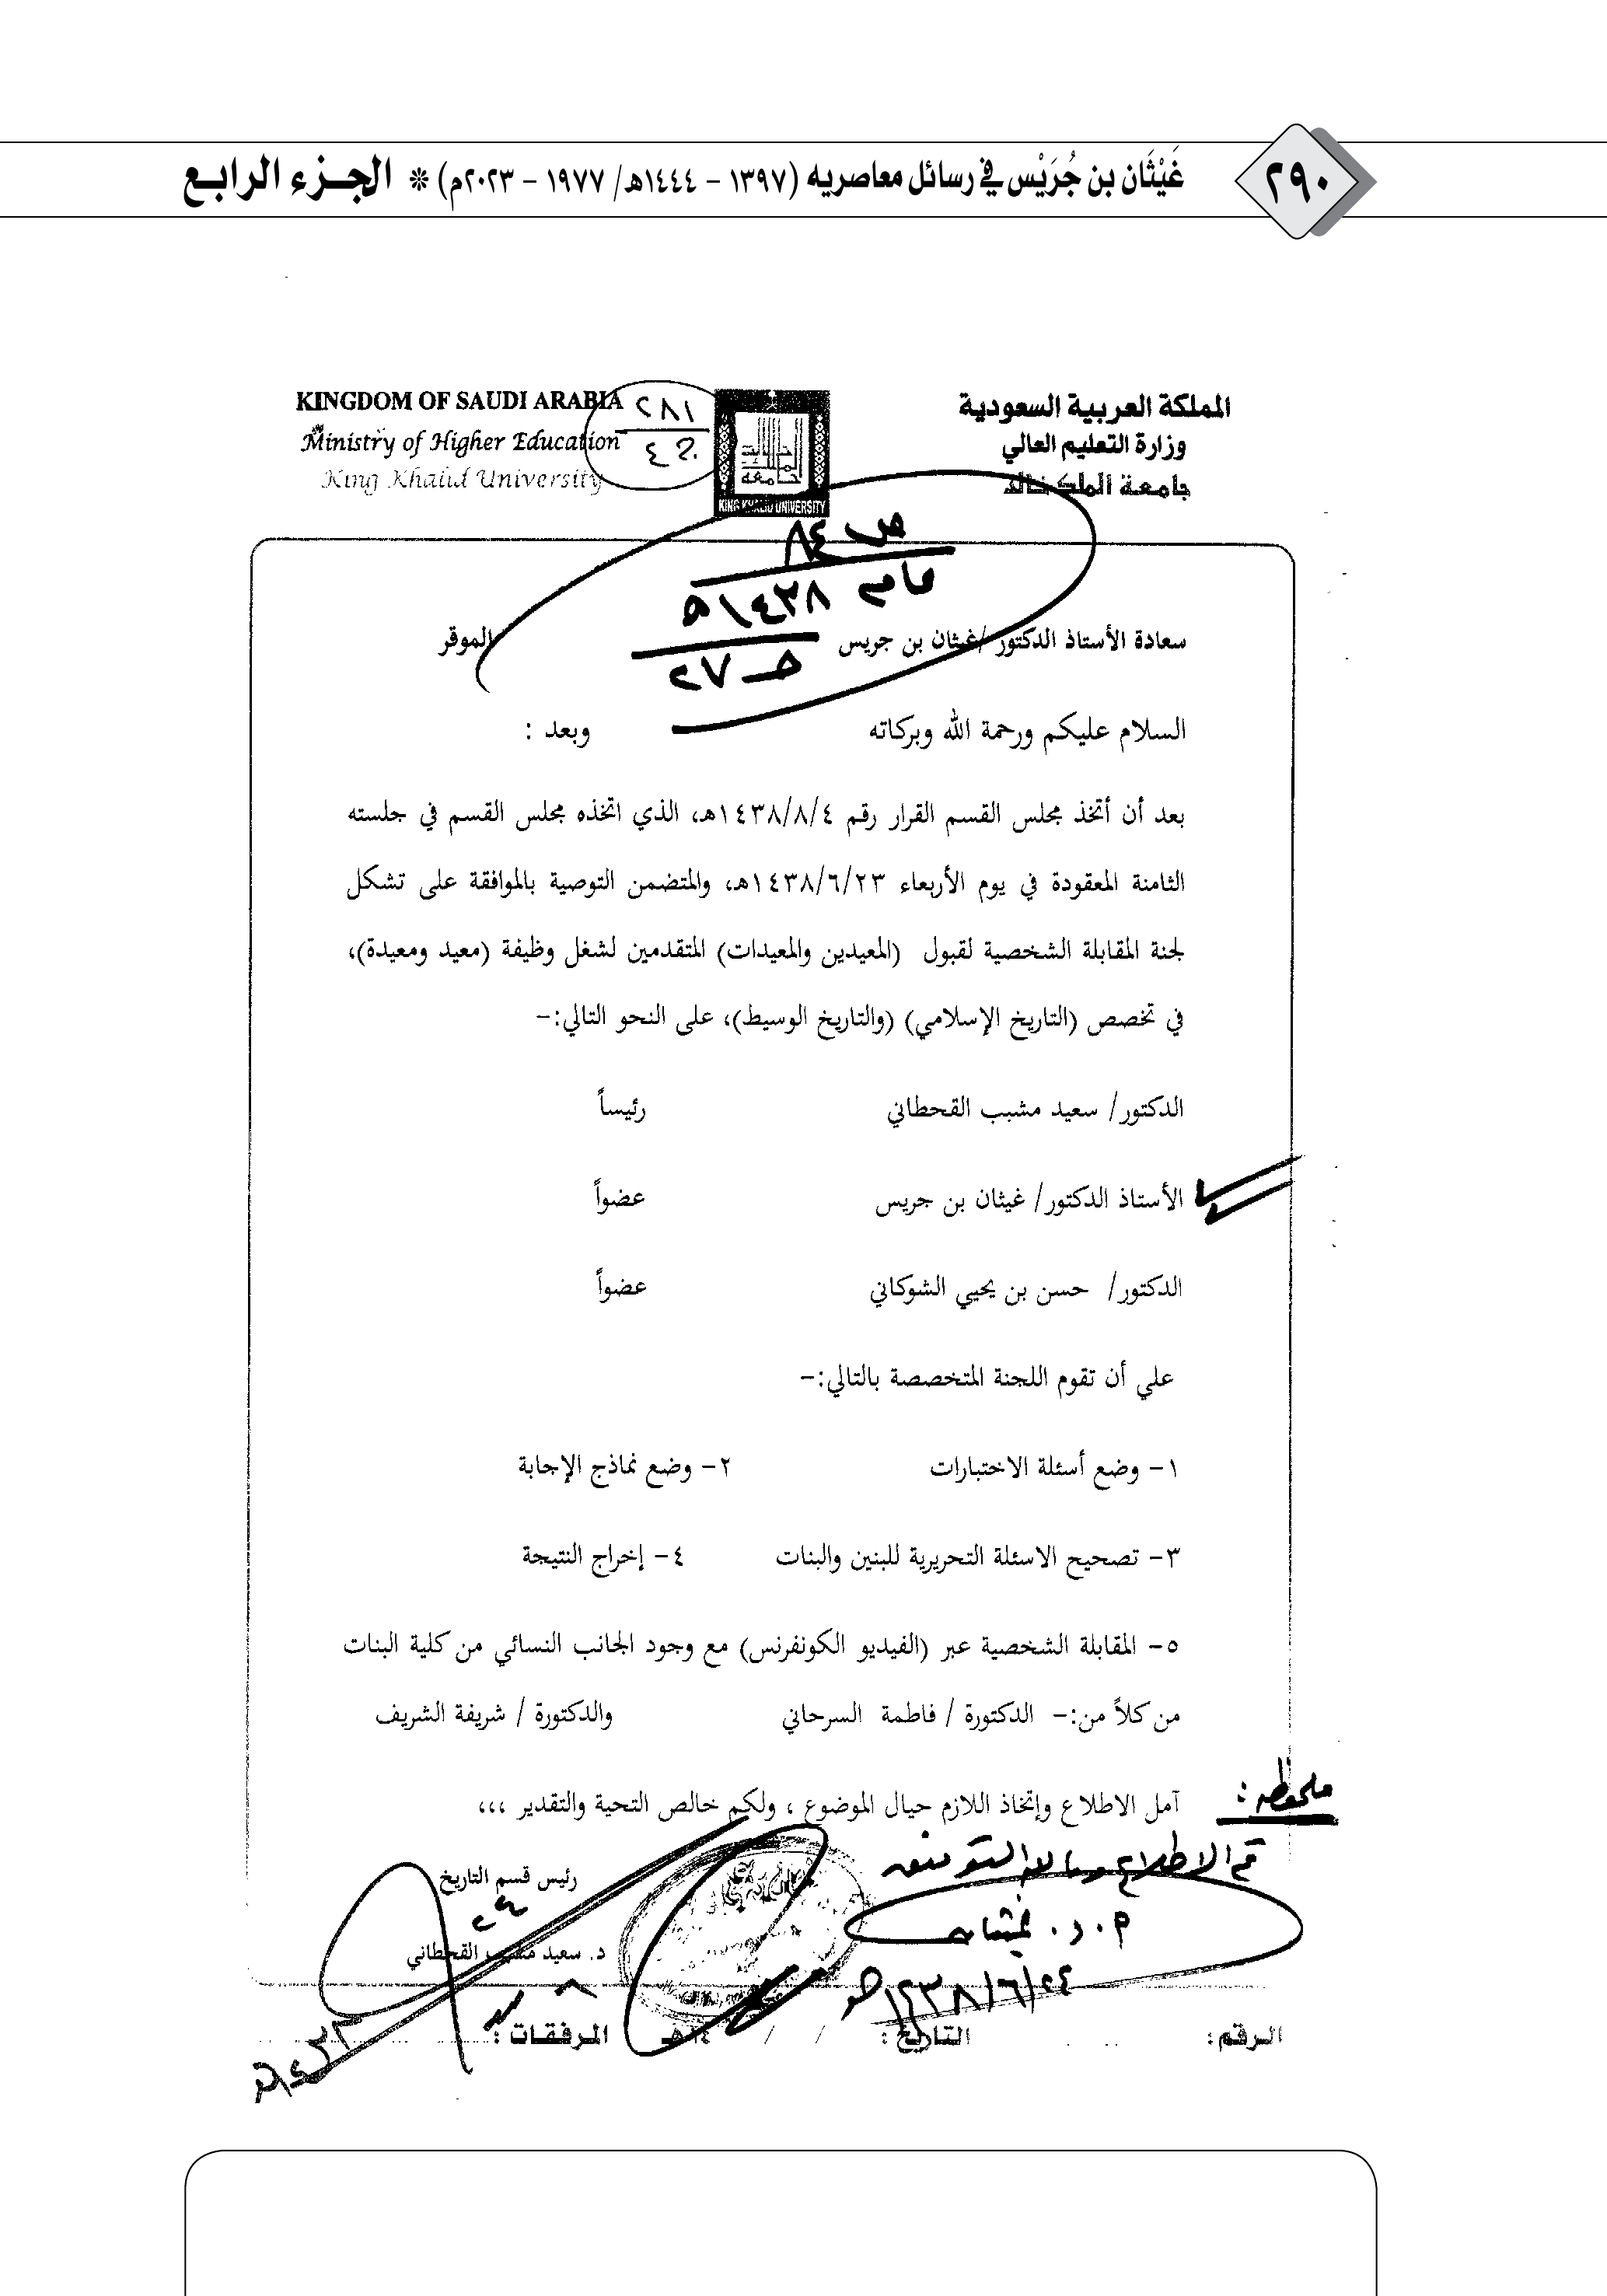 ٢٩٠
غَيْثَان بن جُرَيْس في رسائل معاصريه (١٣٩٧ - ١٤٤٤هـ/ ١٩٧٧ - ٢٠٢٣م) ❊ الجـزء الرابـع
المملكة العربية السعودية
وزارة التعليم العالي
جامعة الملك خالد
KINGDOM OF SAUDI ARABIA
Ministry of Higher Education
King Khalid University
٢٨١
ج ٤
KING KHALID UNIVERSITY
ص ٨٤
عام ١٤٣٨هـ
حـ ٢٧
سعادة الأستاذ الدكتور /غيثان بن جريس الموقر
السلام عليكم ورحمة الله وبركاته وبعد :
بعد أن أتخذ مجلس القسم القرار رقم ١٤٣٨/٨/٤هـ، الذي اتخذه مجلس القسم في جلسته
الثامنة المعقودة في يوم الأربعاء ١٤٣٨/٦/٢٣هـ، والمتضمن التوصية بالموافقة على تشكل
لجنة المقابلة الشخصية لقبول (المعيدين والمعيدات) المتقدمين لشغل وظيفة (معيد ومعيدة)،
في تخصص (التاريخ الإسلامي) (والتاريخ الوسيط)، على النحو التالي:-
الدكتور/ سعيد مشبب القحطاني رئيساً
الأستاذ الدكتور/ غيثان بن جريس عضواً
الدكتور/ حسن بن يحيي الشوكاني عضواً
علي أن تقوم اللجنة المتخصصة بالتالي:-
١- وضع أسئلة الاختبارات ٢- وضع نماذج الإجابة
٣- تصحيح الاسئلة التحريرية للبنين والبنات ٤- إخراج النتيجة
٥- المقابلة الشخصية عبر (الفيديو الكونفرنس) مع وجود الجانب النسائي من كلية البنات
من كلاً من:- الدكتورة / فاطمة السرحاني والدكتورة / شريفة الشريف
آمل الاطلاع وإتخاذ اللازم حيال الموضوع ، ولكم خالص التحية والتقدير ،،،
ملحوظة :
تم الاطلاع وبالله التوفيق
أ.د. غيثان
١٤٣٨/٦/٢٤هـ
رئيس قسم التاريخ
د. سعيد مشبب القحطاني
الرقم: التاريخ : / / ١٤هـ المرفقات :